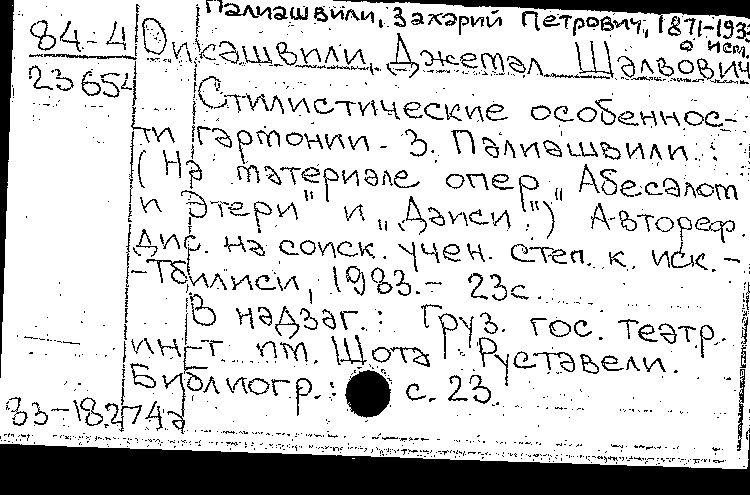 Палиашвили, Захарий Петрович, 1871-1933
о нем.
84-4 Пикашвили, Джемал Шалвович
23654
Стилистические особеннос-
ти гармонии З. Палиашвили:
(На материале опер „Абесалом
и Этери" и „Даиси".) Автореф.
дис. на соиск. учен. степ. к. иск. -
- Тбилиси, 1983. - 23с.
В надзаг.: Груз. гос. театр.
ин-т им. Шота Руставели.
Библиогр.: с. 23.
83-18274а